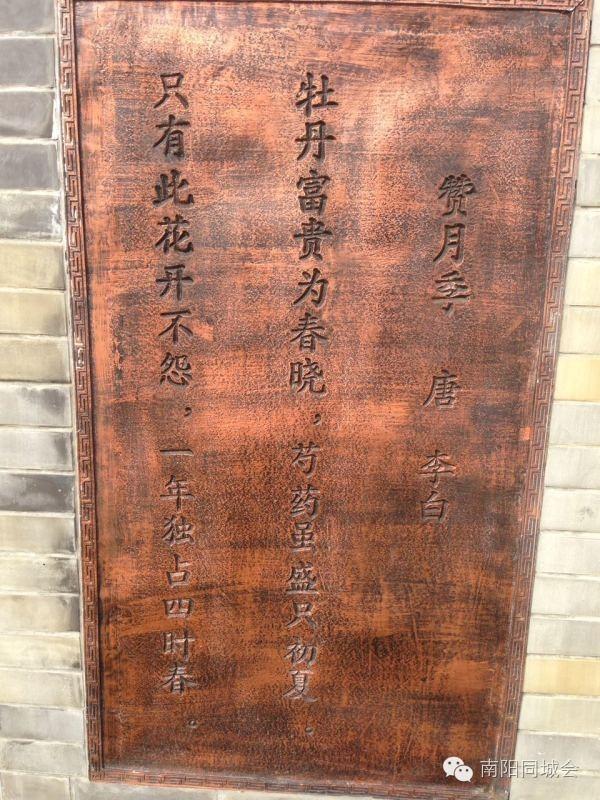 赞月季 唐 李白
牡丹富贵为春晓，芍药虽盛只初夏．
只有此花开不怨，一年独占四时春．
南阳同城会